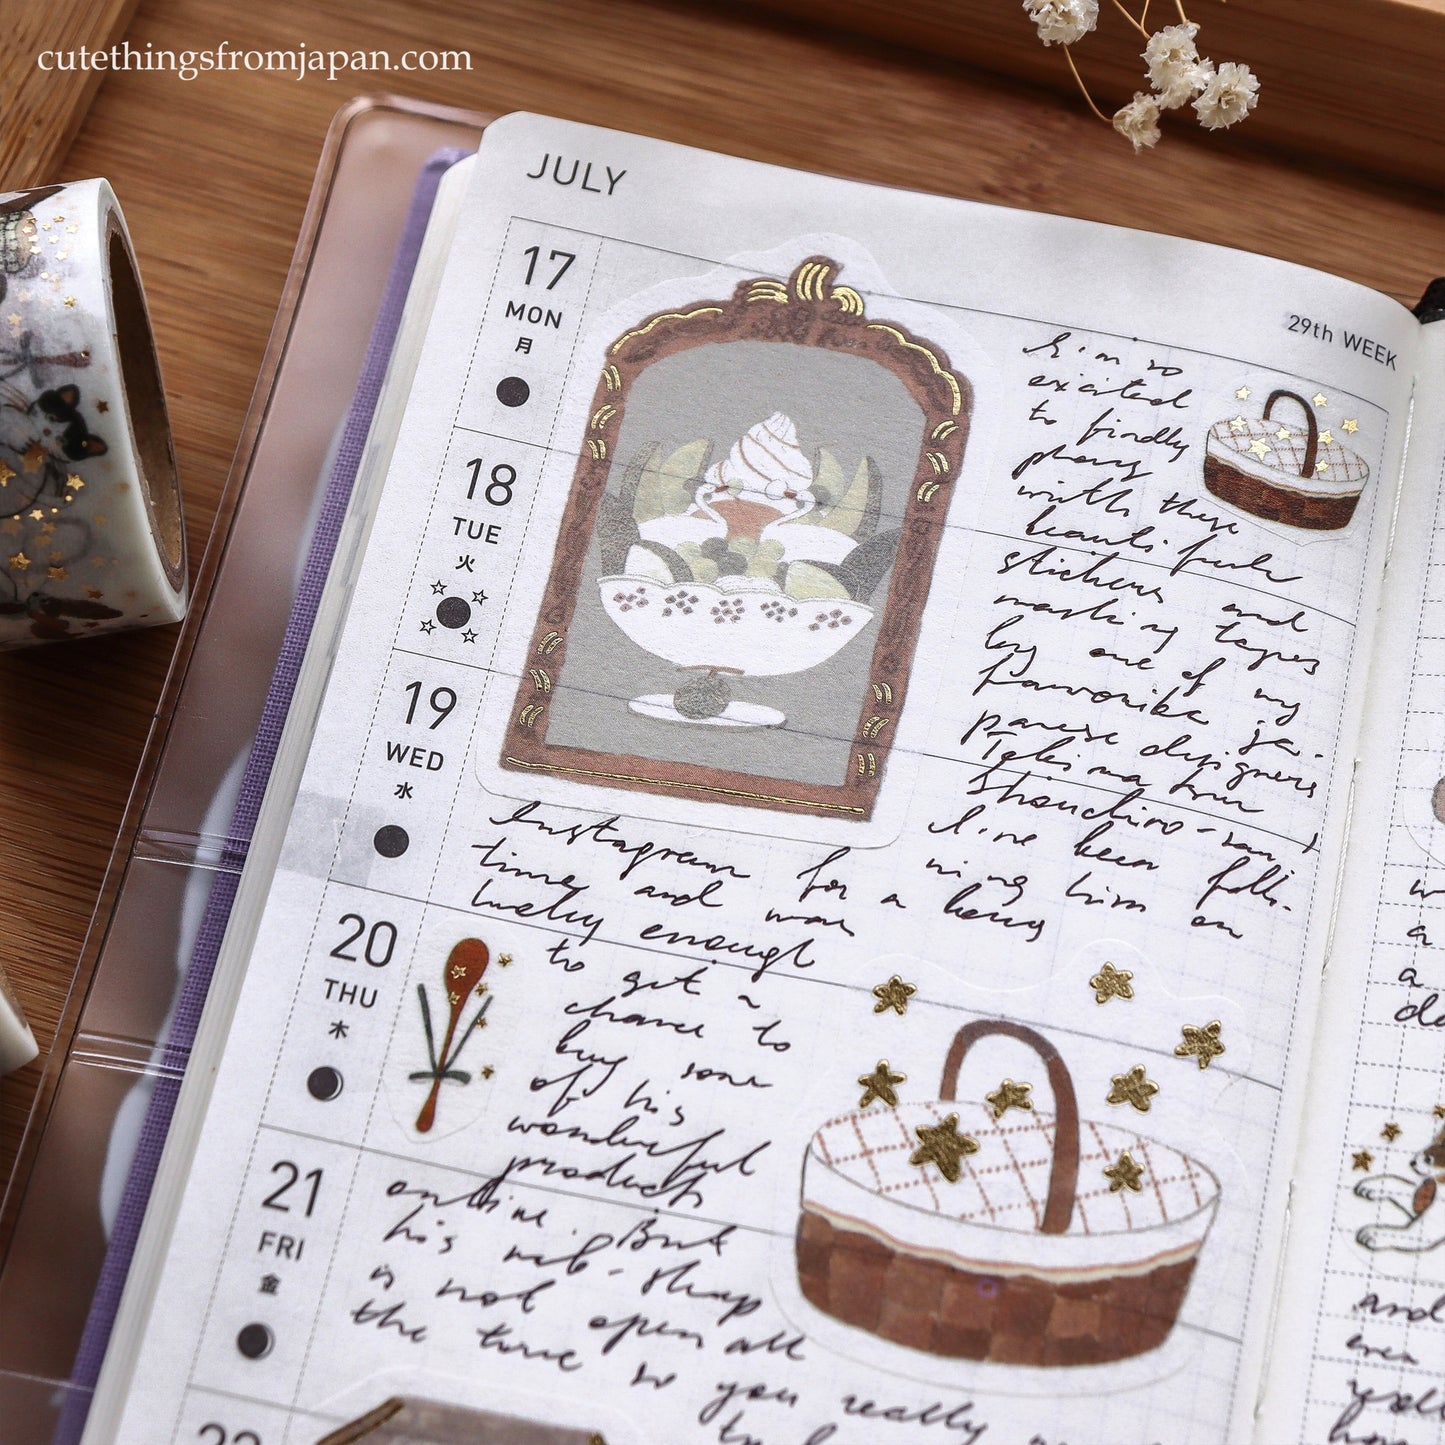 cutethingsfromjapan.com
JULY
29th WEEK
17
MON
月
18
TUE
火
19
WED
水
20
THU
木
21
FRI
金
I'm so
excited
to finally
with these
beautiful
stickers and
masking tapes
by one of my
favorite ja-
panese designers
I've been follo-
wing him on
Instagram for a long
time and was
lucky enough
to get a
chance to
buy some
of his
wonderful
products
online. But
his web-shop
is not open all
the time so you really